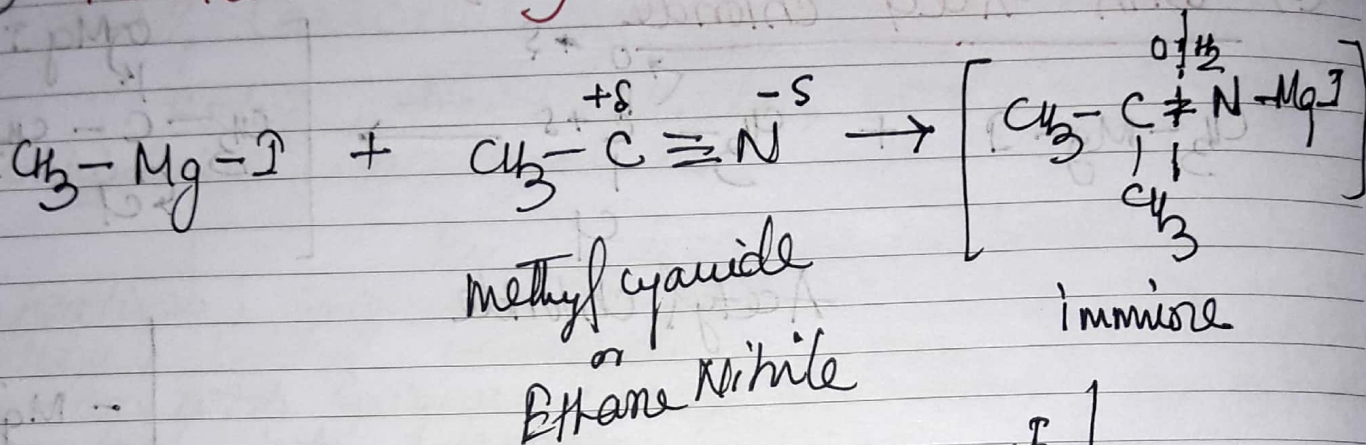 O H2
+δ -δ
CH3 - Mg - I + CH3 - C ≡ N → [CH3 - C ≠ N - MgI]
CH3
methyl cyanide
or
Ethane Nitrile
immine
I